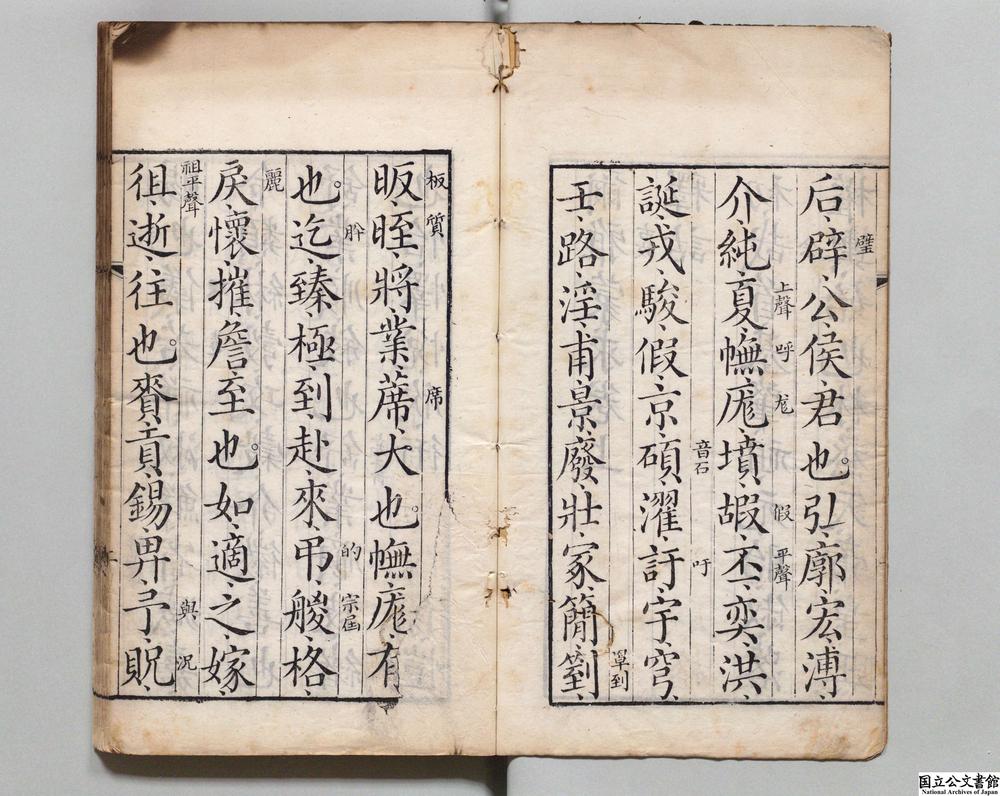 璧
后、辟、公、侯、君也。弘、廓、宏、溥、
上聲 呼 尨 假 平聲
介、純、夏、幠、厖、墳、嘏、丕、奕、洪、
音石 吁
誕、戎、駿、假、京、碩、濯、訏、宇、穹、
罩到
壬、路、淫、甫、景、廢、壯、冢、簡、箌、
板 質 席
昄、晊、將、業、蓆、大也。幠、厖、有
肸 的 宗屆
也。迄、臻、極、到、赴、來、弔、艐、格、
麗
戾、懷、摧、詹、至也。如、適、之、嫁、
祖平聲 與 況
徂、逝、往也。賚、貢、錫、畀、予、貺、
国立公文書館
National Archives of Japan